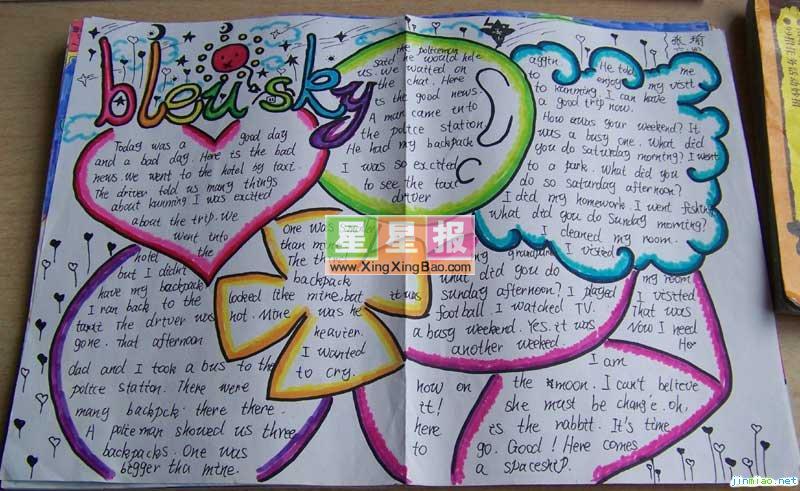 bleu sky
Today was a good day
and a bad day. Here is the bad
news. We went to the hotel by taxi.
The driver told us many things
about kunming I was excited
about the trip. We
went into
the
hotel
but I didn't
have my backpack
I ran back to the
taxi the driver was
gone. That afternoon
dad and I took a bus to the
police station. There were
many backpck there there.
A policeman showed us three
backpacks. One was
bigger tha mine.
One was
than
The
backpack
looked like mine, but it was
not. Mine was he
heavier.
I wanted
to cry.
the policeman
said he would hele
us. We waited on
the chat. Here
is the good news.
A man came into
the police station
He had my backpack
I was so excited
to see the taxi
driver
again He told me
to enjoy my visit
to kunming. I can have
a good trip now.
How was your weekend? It
was a busy one. What did
you do saturday morning? I went
to a park. What did you
do so satarday afternoon?
I did my homework. I went fishing
What did you do Sunday morning?
I cleaned my room.
I visited
my
what did you do
sunday afternoon? I played
football. I watched TV.
a busy weekend. Yes. it was
another weeked.
my room
I visited
That was
Now I need
Hor
I am
now on the moon. I can't believe
it! she must be chang'e. oh,
here is the rabbit. It's time
to go. Good! Here comes
a spaceship.
张瑜
星星报
www.XingXingBao.com
jinmiao.net